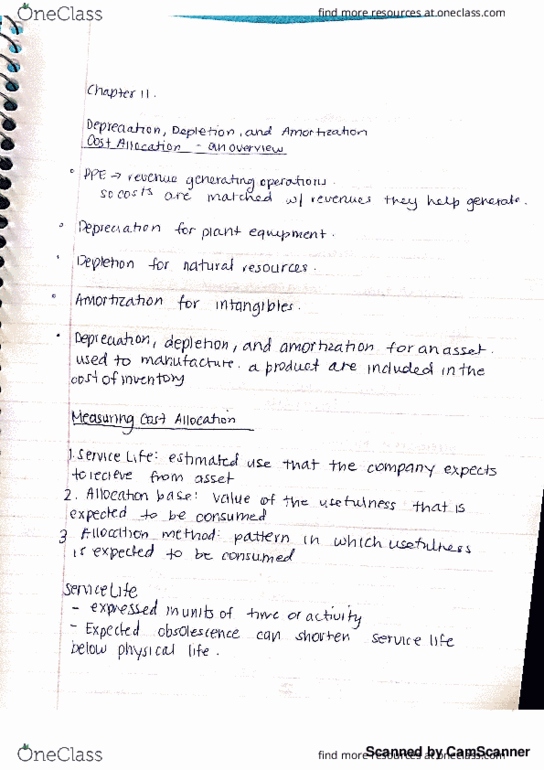 OneClass
find more resources at oneclass.com
Chapter 11.
Depreciation, Depletion, and Amortization
Cost Allocation - an overview
• PPE → revenue generating operations.
so costs are matched w/ revenues they help generate.
• Depreciation for plant equipment.
• Depletion for natural resources.
• Amortization for intangibles.
• Depreciation, depletion, and amortization for an asset.
used to manufacture. a product are included in the
cost of inventory
Measuring Cost Allocation
1. Service Life: estimated use that the company expects
to recieve from asset
2. Allocation base: value of the usefulness that is
expected to be consumed
3 Allocation method: pattern in which usefulness
is expected to be consumed
Service Life
- expressed in units of time or activity
- Expected obsolescence can shorten service life
below physical life.
OneClass
find more resources at oneclass.com
Scanned by CamScanner